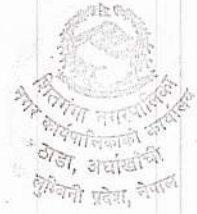 सितगंगा नगरपालिका
नगर कार्यपालिकाको कार्यालय
ठाडा, अर्घाखाँची
लुम्बिनी प्रदेश, नेपाल